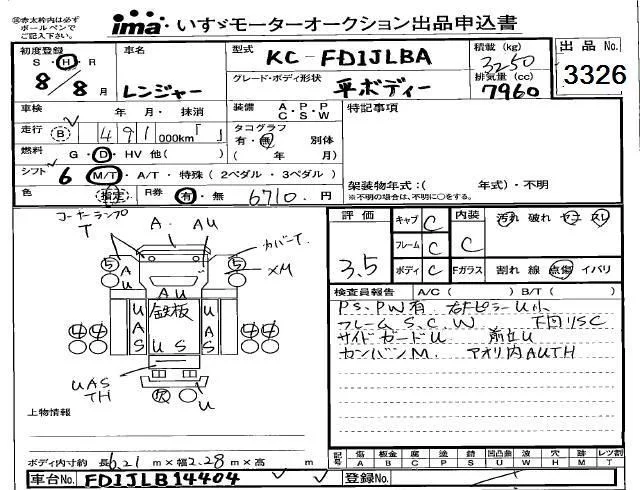 ※赤太枠内は必ず
ボールペンで
ご記入下さい。
ima いすゞモーターオークション出品申込書
初度登録 車名 型式 KC-FD1JLBA 積載(kg) 3250 出品No.
S・H・R 8/8月 レンジャー グレード・ボディ形状 平ボディー 排気量(cc) 7960 3326
車検 年・月・抹消 装備 A・P・P C・S・W 特記事項
走行 B 491 000km「 」 タコグラフ 有・無 別体
燃料 G・D・HV 他( ) ( 年 月)
シフト 6 M/T・A/T・特殊(2ペダル・3ペダル) 架装物年式:( 年式)・不明
色 指定 R券 有・無 6710.円 ※不明の場合は、不明に○をする。
コーナーランプ T A. AU カバーT.
評価 3.5 キャブ C 内装 C 汚れ 破れ ヤニ スレ
フレーム C
ボディ C Fガラス 割れ 線 点傷 イバリ
5 A U 5 XM
AU
鉄板
4 4 UAS UAS 4 4
U S
検査員報告 A/C( ) B/T( )
P.S、PW有 右ドピラーU小
フレームS.C.W 下回リSC
サイドガードU 前立U
カンバンM. アオリ内AUTH
UAS
TH
U
上物情報
ボディ内寸約 長6.21m×幅2.28m×高 m
記号 傷A 板金B 腐C 塗P 錆S 凹凸曲U 波W 穴H 跡M レンズ割T
車台No. FD1JLB14404 登録No.